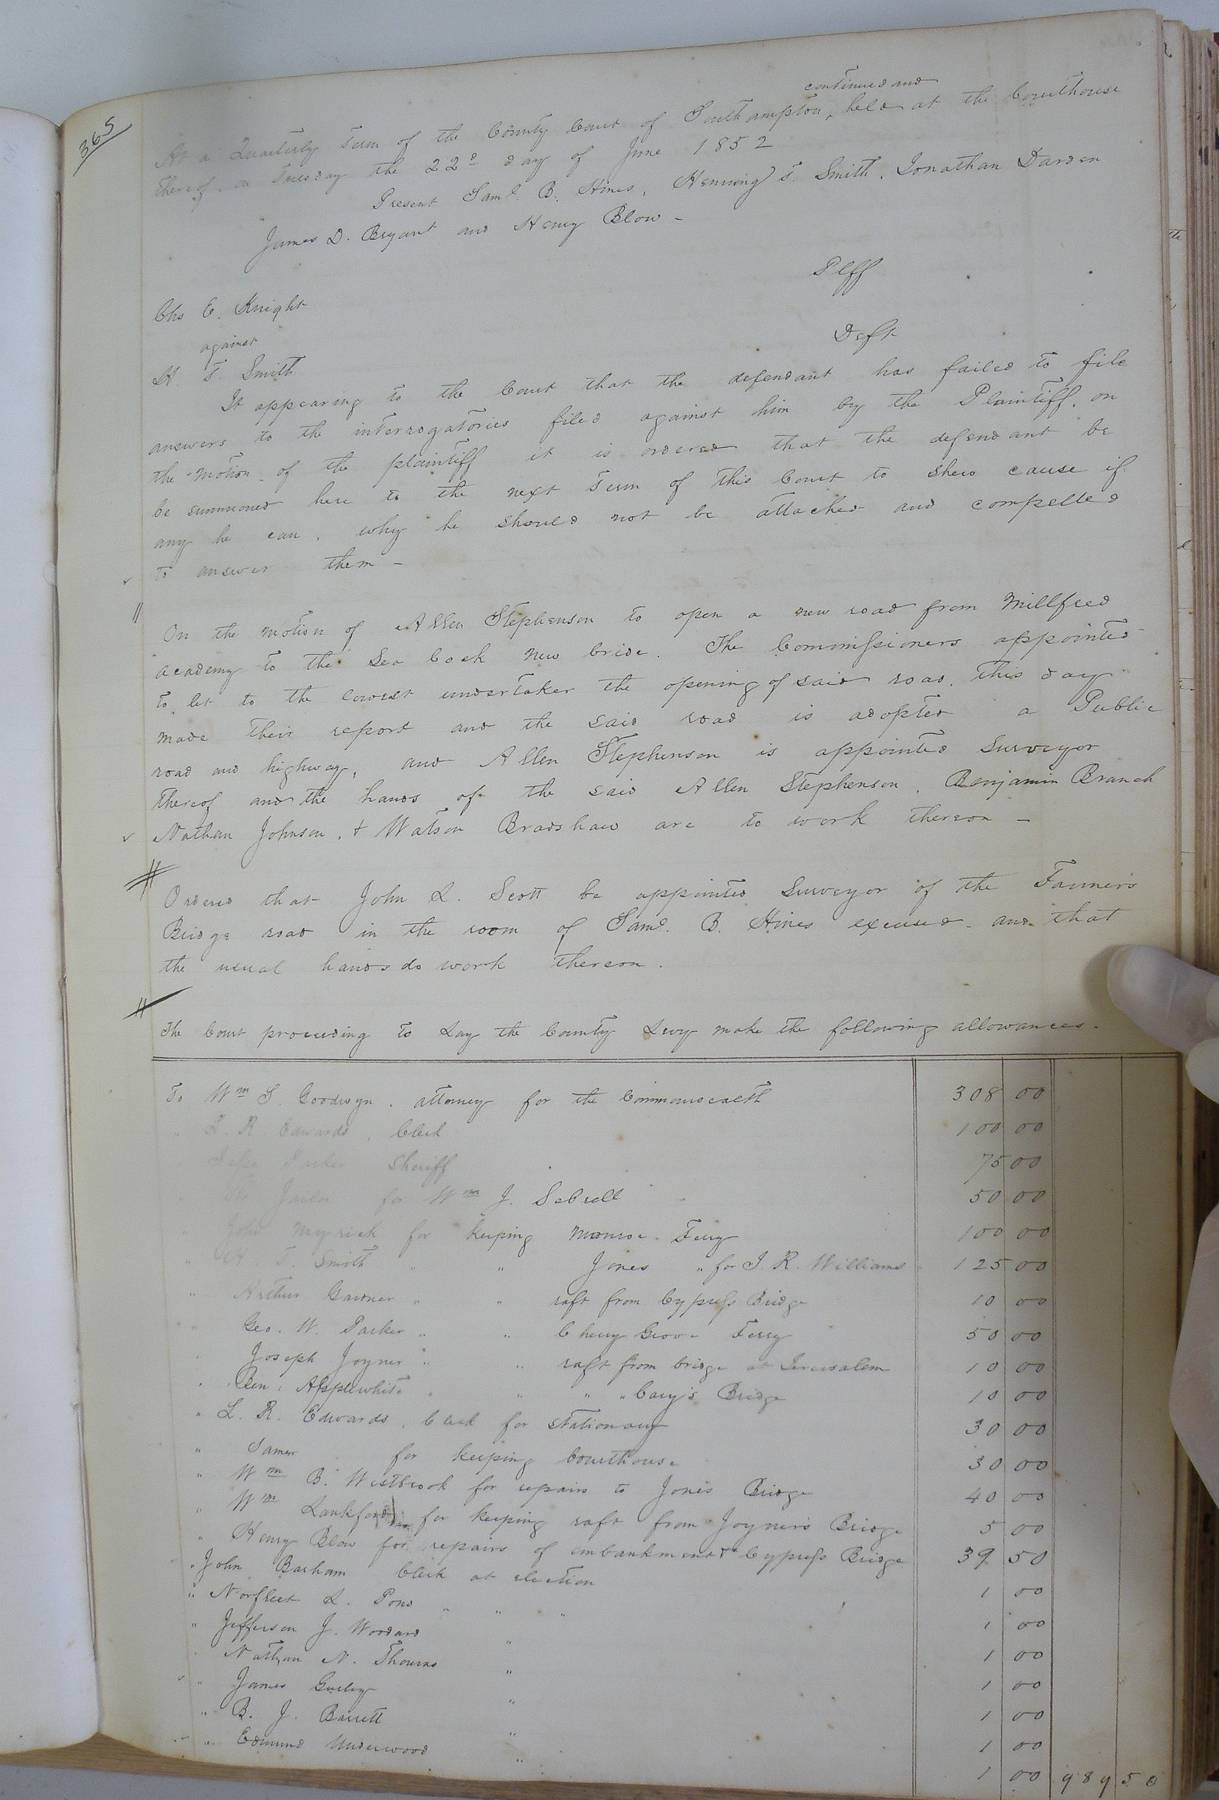 365
continued and
At a Quarterly Term of the County Court of Southampton, held at the Courthouse
thereof, on Tuesday the 22d day of June 1852
Present Saml. B. Hines, Henning T. Smith, Jonathan Darden
James D. Bryant and Henry Blow -
Plff
Chs E. Knight
against
Deft
H T. Smith
It appearing to the Court that the defendant has failed to file
answers to the interrogatories filed against him by the Plaintiff, on
the motion of the plaintiff it is ordered that the defendant be
be summoned here to the next Term of this Court to shew cause if
any he can, why he should not be attached and compelled
to answer them -
On the motion of Allen Stephenson to open a new road from Millfied
academy to the Sea Cock new bride. The Commissioners appointed
to let to the lowest undertaker the opening of said road, this day
made their report and the said road is adopted a Public
road and highway, and Allen Stephenson is appointed Surveyor
thereof and the hands of the said Allen Stephenson, Benjamin Branch
Nathan Johnson, & Watson Bradshaw are to work thereon -
Ordered that John L. Scott be appointed Surveyor of the Farmer's
Bridge road in the room of Saml. B. Hines excused - and that
the usual hands do work thereon.
The Court proceeding to Lay the County Levy make the following allowances.
To Wm S. Goodwyn, attorney for the Commonwealth 308 00
" L. R. Edwards, Clerk 100 00
Parker Sheriff 75 00
for Wm J. Sebrell 50 00
" John Myrick for keeping Monroe Ferry 100 00
" H. T. Smith " " Jones " for J. R. Williams 125 00
" Arthur Gardner " " raft from Cypress Bridge 10 00
" Geo. W. Parker " " Cherry Grove Ferry 50 00
" Joseph Joyner " " raft from bridge at Jerusalem 10 00
" Ben. Applewhite " " " " Cary's Bridge 10 00
" L. R. Edwards, Clerk for Stationary 30 00
" Same for keeping Courthouse 30 00
" Wm B. Westbrook for repairs to Jones Bridge 40 00
" Wm Lankford for keeping raft from Joyner's Bridge 5 00
" Henry Blow for repairs of embankment Cypress Bridge 39 50
" John Barham Clerk at election 1 00
" Norfleet L. Pond " " " 1 00
" Jefferson J. Woodard " 1 00
" Nathan N. Thomas " 1 00
" James Gurley " 1 00
" B. J. Barrett " 1 00
" Edmund Underwood " 1 00 989 50